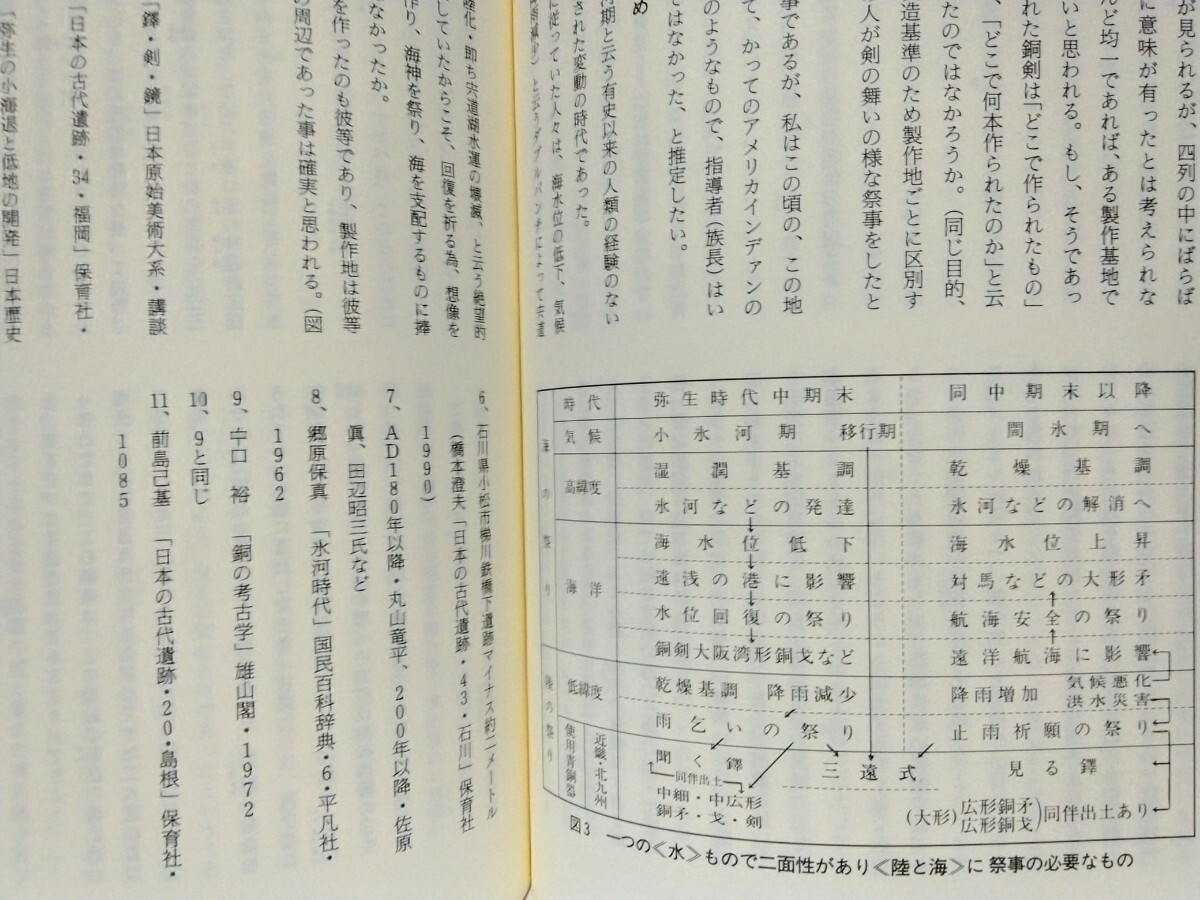 が見られるが、四列の中にばらば
に意味が有ったとは考えられな
んど均一であれば、ある製作基地で
いと思われる。もし、そうであっ
れた銅剣は「どこで作られたもの」
、「どこで何本作られたのか」と云
たのではなかろうか。（同じ目的、
造基準のため製作地ごとに区別す
人が剣の舞いの様な祭事をしたと
事であるが、私はこの頃の、この地
て、かってのアメリカインデァンの
のようなもので、指導者（族長）はい
ではなかった、と推定したい。
め
期と云う有史以来の人類の経験のない
された変動の時代であった。
に従っていた人々は、海水位の低下、気候
と云うダブルパンチによって宍道
海の祭り
陸の祭り
時代
弥生時代中期末
同中期末以降
気候
小氷河期 移行期
間氷期へ
高緯度
湿潤基調
乾燥基調
氷河などの発達
氷河などの解消へ
海洋
海水位低下
海水位上昇
遠浅の港に影響
対馬などの大形矛
水位回復の祭り
航海安全の祭り
銅剣大阪湾形銅戈など
遠洋航海に影響
低緯度
乾燥基調 降雨減少
降雨増加 気候悪化
洪水災害
雨乞いの祭り
止雨祈願の祭り
使用青銅器
近畿・北九州
聞く鐸
三遠式
見る鐸
同伴出土
中細・中広形
銅矛・戈・剣
(大形)
広形銅矛
広形銅戈
同伴出土あり
図3 一つの≪水≫もので二面性があり≪陸と海≫に祭事の必要なもの
陸化・即ち宍道湖水運の壊滅、と云う絶望的
していたからこそ、回復を祈る為、想像を
作り、海神を祭り、海を支配するものに捧
なかったか。
を作ったのも彼等であり、製作地は彼等
の周辺であった事は確実と思われる。（図
「鐸・剣・鏡」日本原始美術大系・講談
「日本の古代遺跡・34・福岡」保育社・
「弥生の小海退と低地の開発」日本歴史
6、石川県小松市梯川鉄橋下遺跡マイナス約二メートル
（橋本澄夫「日本の古代遺跡・43・石川」保育社
1990）
7、AD180年以降・丸山竜平、200年以降・佐原
眞、田辺昭三氏など
8、郷原保真 「氷河時代」国民百科辞典・6・平凡社・
1962
9、中口 裕 「銅の考古学」雄山閣・1972
10、9と同じ
11、前島己基 「日本の古代遺跡・20・島根」保育社・
1085